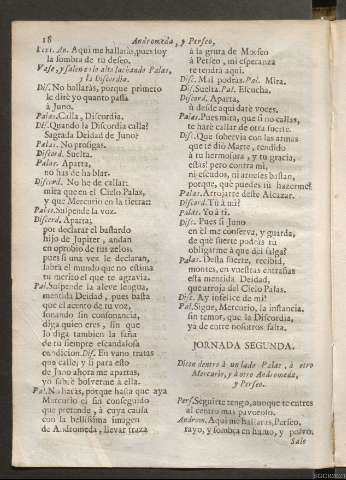 18
Andromeda, y Perseo,
Pers. An. Aqui me hallaràs, pues soy
la sombra de tu deseo.
Vase, y salen en lo alto luchando Palas,
y la Discordia.
Dis. No hallaràs, porque primero
le dirè yo quanto passa
à Juno.
Palas. Calla, Discordia.
Dis. Quando la Discordia calla?
Sagrada Deidad de Juno?
Palas. No prosigas.
Discord. Suelta.
Palas. Aparta,
no has de hablar.
Discord. No he de callar:
mira que en el Cielo Palas,
y que Mercurio en la tierra:
Palas. Suspende la voz.
Discord. Aparta;
por declarar el bastardo
hijo de Jupiter, andan
en oprobio de tus zelos:
pues si una vez le declaran,
sabrà el mundo que no estima
tu merito el que te agravia.
Pal. Suspende la aleve lengua,
mentida Deidad, pues basta
que el acento de tu voz,
sonando sin consonancia,
diga quien eres, sin que
lo diga tambien la saña
de tu siempre escandalosa
condicion. Dis. En vano tratas
que calle, y si para esto
de Juno ahora me apartas,
yo sabrè bolverme à ella.
Pal. No haràs, porque hasta que aya
Mercurio el fin conseguido
que pretende, à cuya causa
con la bellissima imagen
de Andromeda, llevar traza
à la gruta de Morfeo
à Perseo, mi esperanza
te tendrà aqui.
Disc. Mal podràs. Pal. Mira.
Dis. Suelta. Pal. Escucha.
Discord. Aparta,
ù desde aqui darè voces.
Palas. Pues mira, que si no callas,
te harè callar de otra suerte.
Disc. Que sobervia con las armas
que te diò Marte, rendido
à tu hermosura, y tu gracia,
estàs! pero contra mi,
ni escudos, ni arneses bastan,
porque, què puedes tù hazerme?
Palas. Arrojarte deste Alcazar.
Discord. Tù à mi?
Palas. Yo à ti.
Disc. Pues si Juno
en èl me conserva, y guarda,
de què suerte podràs tu
obligarme à que dèl salga?
Palas. Desta suerte, recibid,
montes, en vuestras entrañas
esta mentida Deidad,
que arroja del Cielo Palas.
Disc. Ay infelice de mi!
Pal. Sigue, Mercurio, la instancia,
sin temor, que la Discordia,
ya de entre nosotros falta.
JORNADA SEGUNDA.
Dicen dentro à un lado Palas, à otro
Mercurio, y à otro Andromeda,
y Perseo.
Pers. Seguirte tengo, aunque te entres
al centro mas pavoroso.
Androm. Aqui me hallaràs, Perseo,
rayo, y sombra en humo, y polvo.
Sale